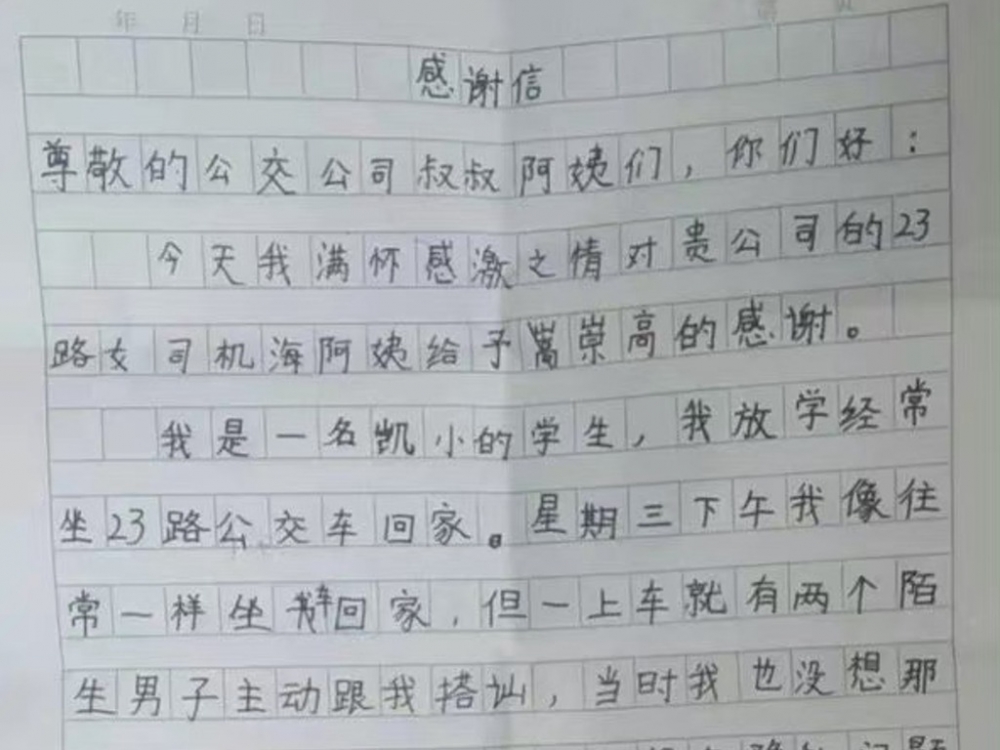 年 月 日
感谢信
尊敬的公交公司叔叔阿姨们，你们好：
今天我满怀感激之情对贵公司的23
路女司机海阿姨给予崇高的感谢。
我是一名凯小的学生，我放学经常
坐23路公交车回家。星期三下午我像往
常一样坐车回家，但一上车就有两个陌
生男子主动跟我搭讪，当时我也没想那